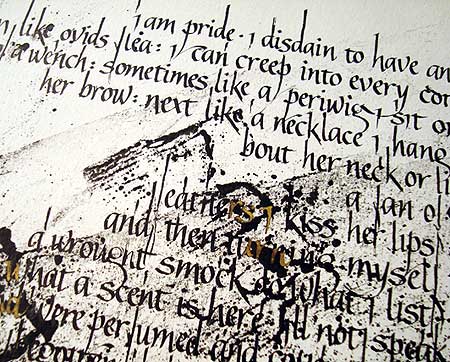 i am pride · i disdain to have an
like ovids flea: i can creep into every cor
a wench: sometimes like a periwig i sit o
her brow: next like a necklace i hang
bout her neck or li
a fan of
feathers i kiss her lips
and then turning myself
a wrought smock what i list
what a scent is here ill not speak
were perfumed and